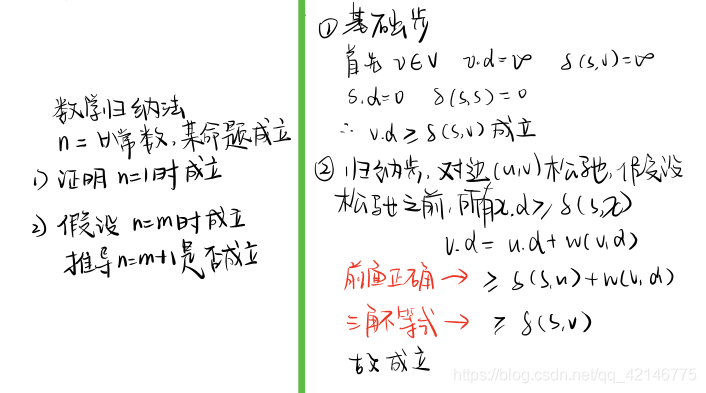 数学归纳法
n=以常数,某命题成立
1) 证明 n=1时成立
2) 假设 n=m时成立
推导n=m+1是否成立
① 基础步
首先 v∈V v.d=∞ δ(s,v)=∞
s.d=0 δ(s,s)=0
∴ v.d≥δ(s,v) 成立
② 归纳步,对边(u,v)松弛,假设
松弛之前,所有x.d≥δ(s,x)
v.d = u.d+w(v,d)
前面正确→ ≥ δ(s,u)+w(v,d)
三角不等式→ ≥ δ(s,v)
故成立
https://blog.csdn.net/qq_42146775